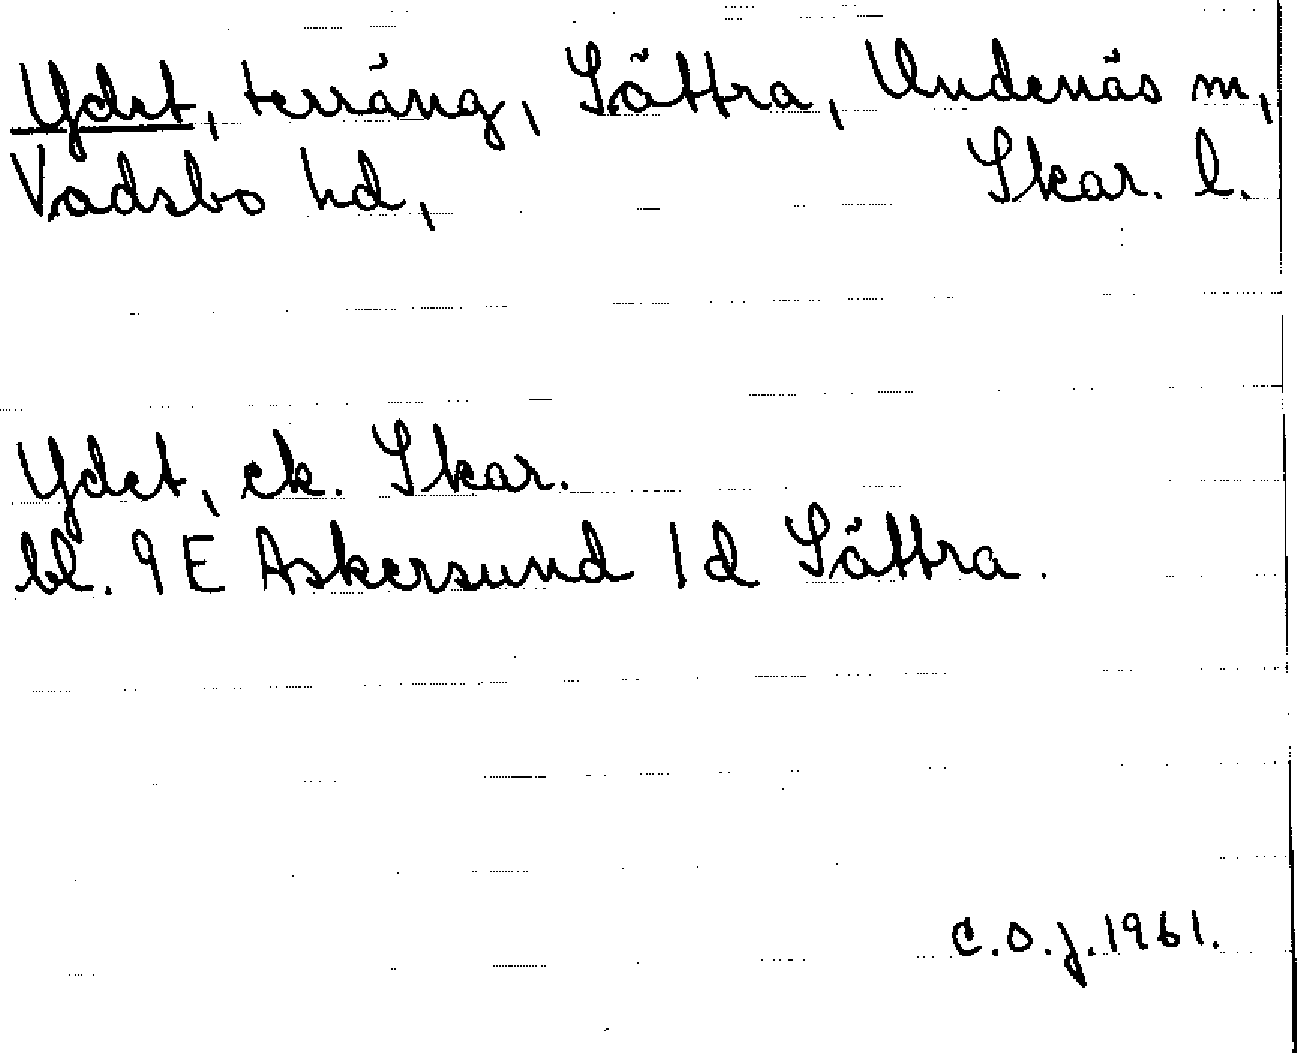 Ydet, terräng, Sättra, Undenäs sn,
Vadsbo hd, Skar. l.
Ydet, ek. Skar.
bl. 9E Askersund 1d Sättra.
C.O.J. 1961.